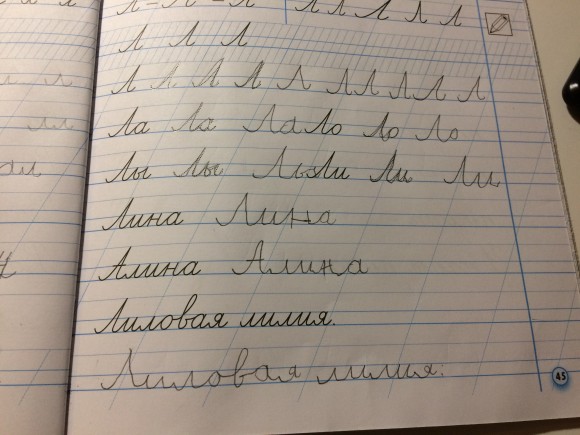 Л Л Л Л Л Л Л Л
Л Л Л
Л Л Л Л Л Л Л Л Л Л
Ла Ла Ла Ло Ло Ло
Лы Лы Лы Ли Ли Ли
Лина Лина
Алина Алина
Лиловая лилия.
Лиловая лилия.
45